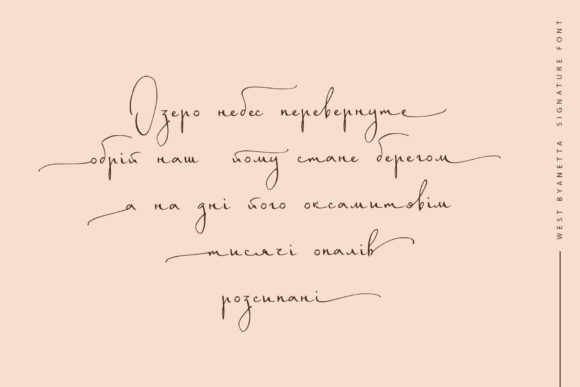 Озеро небес перевернуте
обрій наш йому стане берегом
а на дні його оксамитовім
тисячі опалів
розсипані
WEST BYANETTA SIGNATURE FONT